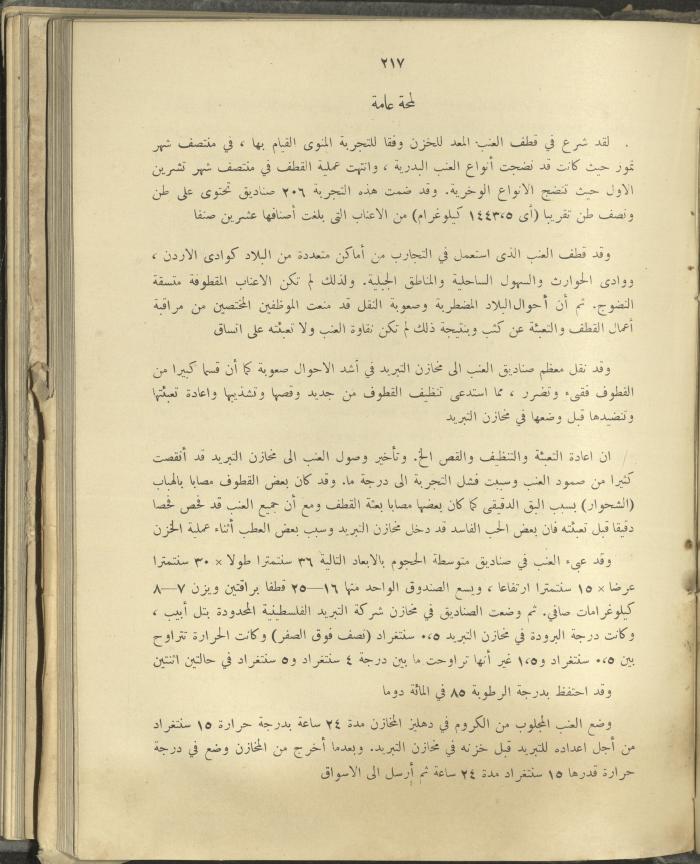 ٢١٧
لمحة عامة
لقد شرع في قطف العنب المعد للخزن وفقا للتجربة المنوى القيام بها ، في منتصف شهر
تموز حيث كانت قد نضجت أنواع العنب البدرية ، وانتهت عملية القطف في منتصف شهر تشرين
الاول حيث تنضج الانواع الوخرية. وقد ضمت هذه التجربة ٢٠٦ صناديق تحتوى على طن
ونصف طن تقريبا (أى ١٤٤٣،٥ كيلوغرام) من الاعناب التى بلغت أصنافها عشرين صنفا
وقد قطف العنب الذى استعمل في التجارب من أماكن متعددة من البلاد كوادى الاردن ،
ووادى الحوارث والسهول الساحلية والمناطق الجبلية. ولذلك لم تكن الاعناب المقطوفة متسقة
النضوج. ثم أن أحوال البلاد المضطربة وصعوبة النقل قد منعت الموظفين المختصين من مراقبة
أعمال القطف والتعبئة عن كثب وبنتيجة ذلك لم تكن نقاوة العنب ولا تعبئته على اتساق
وقد نقل معظم صناديق العنب الى مخازن التبريد في أشد الاحوال صعوبة كما أن قسما كبيرا من
القطوف فقىء وتضرر ، مما استدعى تنظيف القطوف من جديد وقصها وتشذيبها واعادة تعبئتها
وتنضيدها قبل وضعها في مخازن التبريد
ان اعادة التعبئة والتنظيف والقص الخ. وتأخير وصول العنب الى مخازن التبريد قد أنقصت
كثيرا من صمود العنب وسببت فشل التجربة الى درجة ما. وقد كان بعض القطوف مصابا بالهباب
(الشحوار) بسبب البق الدقيقى كما كان بعضها مصابا بعثة القطف ومع أن جميع العنب قد فحص فحصا
دقيقا قبل تعبئته فان بعض الحب الفاسد قد دخل مخازن التبريد وسبب بعض العطب أثناء عملية الخزن
وقد عبىء العنب في صناديق متوسطة الحجوم بالابعاد التالية ٣٦ سنتمترا طولا × ٣٠ سنتمترا
عرضا × ١٥ سنتمترا ارتفاعا ، ويسع الصندوق الواحد منها ١٦—٢٥ قطفا براقتين ويزن ٧—٨
كيلوغرامات صافي. ثم وضعت الصناديق في مخازن شركة التبريد الفلسطينية المحدودة بتل أبيب ،
وكانت درجة البرودة في مخازن التبريد ٠،٥ سنتغراد (نصف فوق الصفر) وكانت الحرارة تتراوح
بين ٠،٥ سنتغراد و١،٥ غير أنها تراوحت ما بين درجة ٤ سنتغراد و٥ سنتغراد في حالتين اثنتين
وقد احتفظ بدرجة الرطوبة ٨٥ في المائة دوما
وضع العنب المجلوب من الكروم في دهليز المخازن مدة ٢٤ ساعة بدرجة حرارة ١٥ سنتغراد
من أجل اعداده للتبريد قبل خزنه في مخازن التبريد. وبعدما أخرج من المخازن وضع في درجة
حرارة قدرها ١٥ سنتغراد مدة ٢٤ ساعة ثم أرسل الى الاسواق